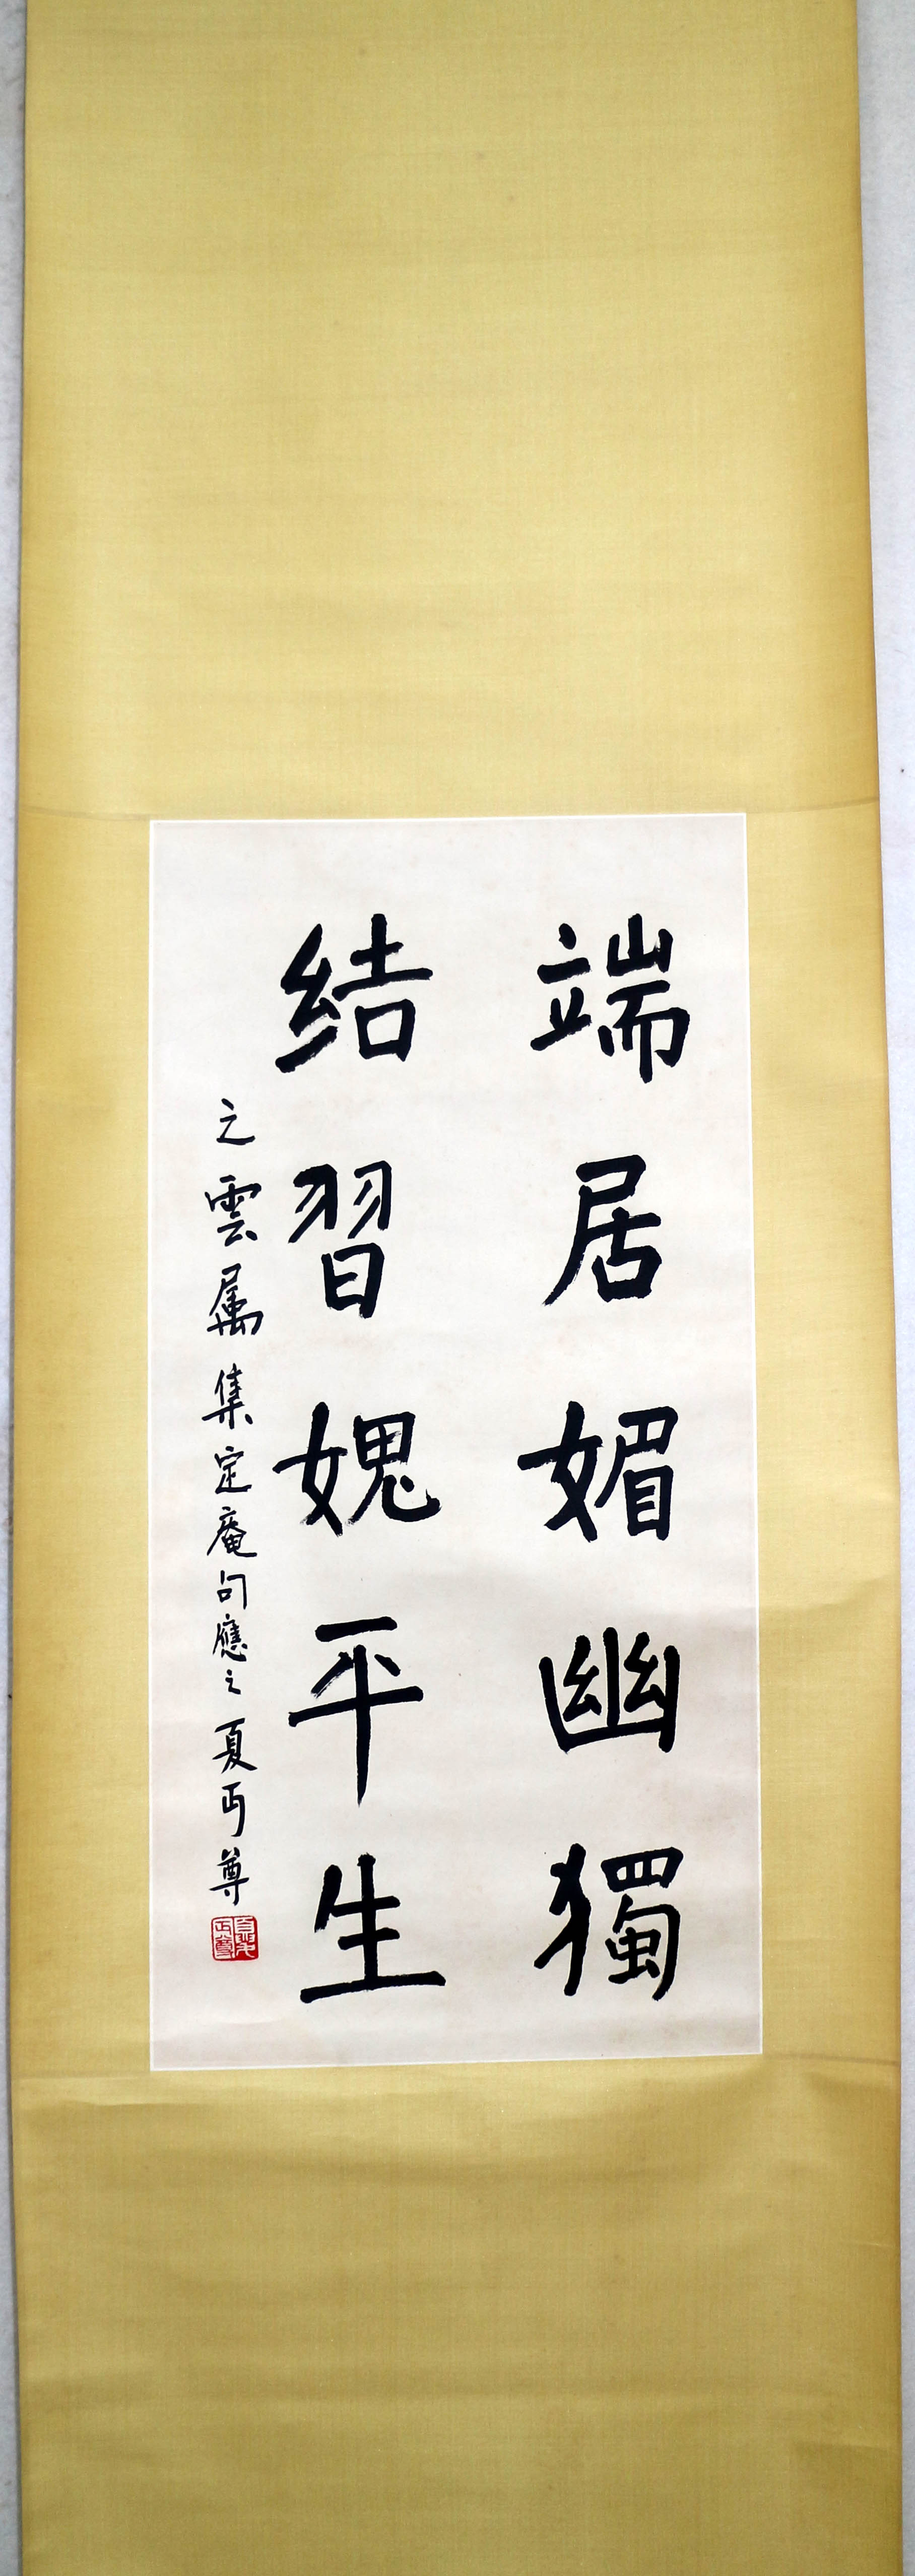 端居媚幽獨
结習媿平生
之雲属集定庵句應之夏丏尊
夏丏尊